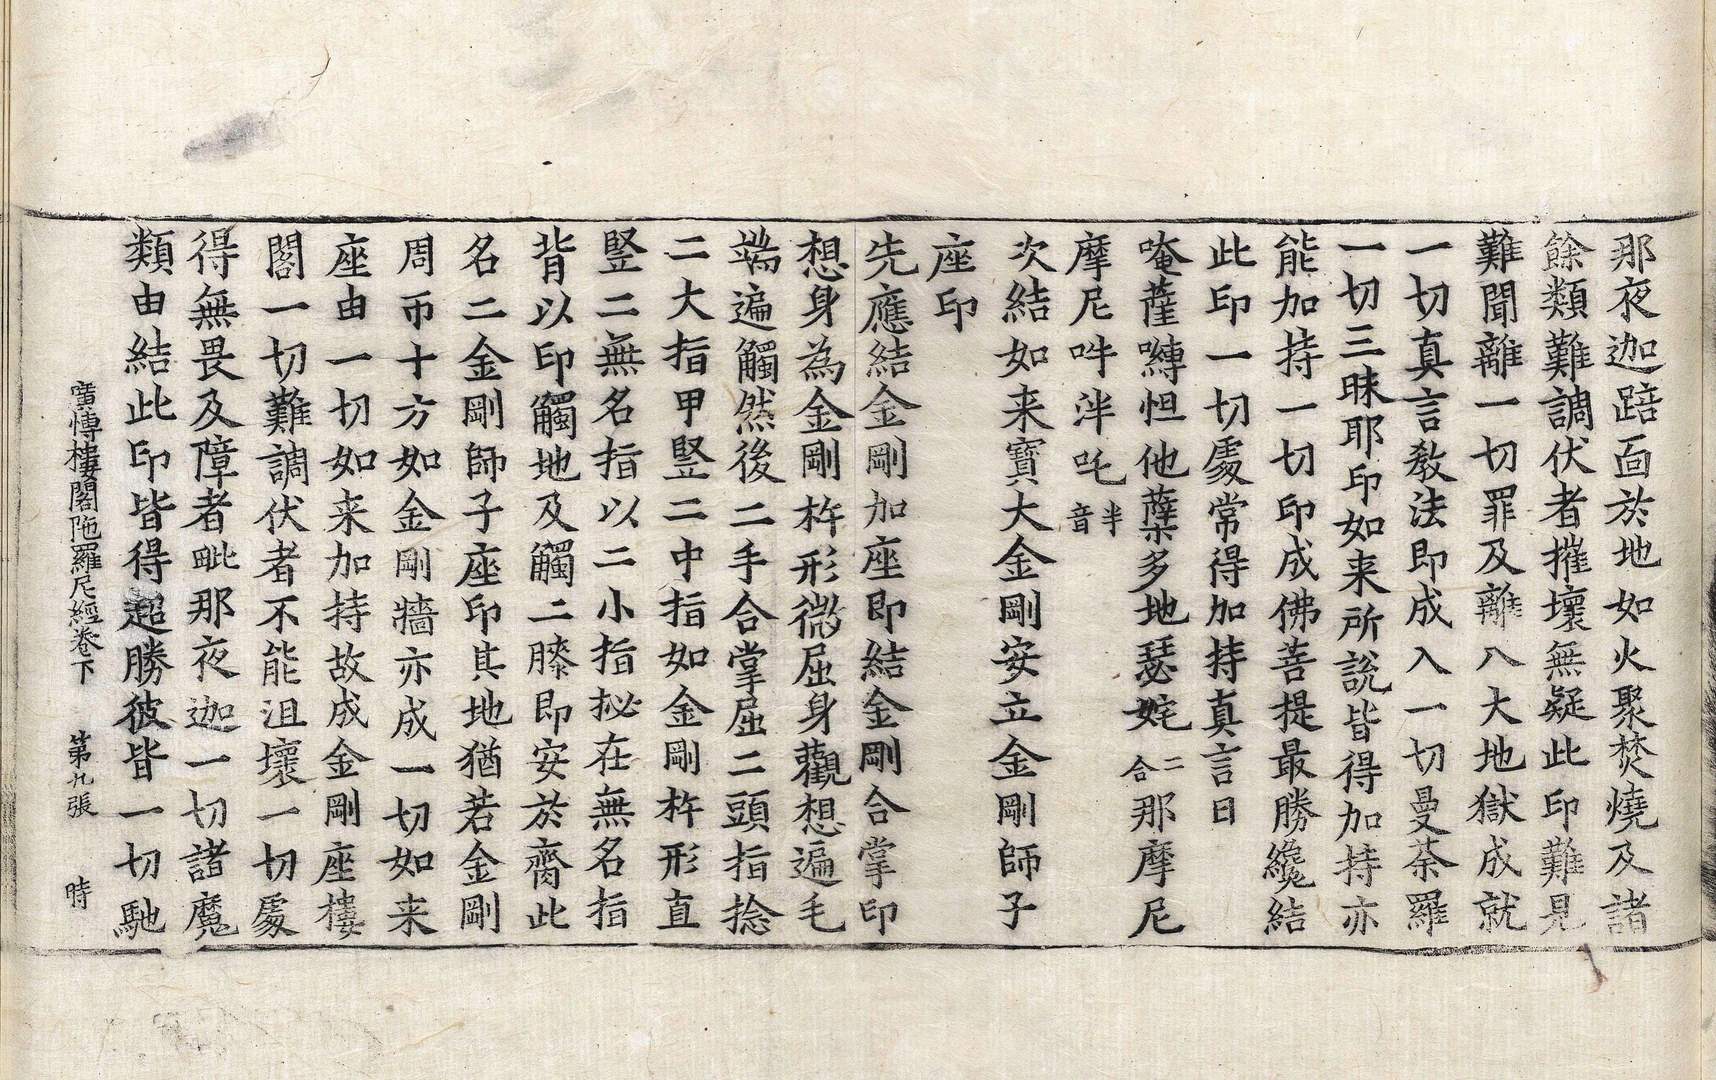 那夜迦踣面於地如火聚焚燒及諸
餘類難調伏者摧壞無疑此印難見
難聞離一切罪及離八大地獄成就
一切真言教法即成入一切曼荼羅
一切三昧耶印如来所說皆得加持亦
能加持一切印成佛菩提最勝纔結
此印一切處常得加持真言曰
唵薩嚩怛他蘖多地瑟姹二合那摩尼
摩尼吽泮吒半音
次結如来寶大金剛安立金剛師子
座印
先應結金剛加座即結金剛合掌印
想身為金剛杵形微屈身觀想遍毛
端遍觸然後二手合掌屈二頭指捻
二大指甲竪二中指如金剛杵形直
竪二無名指以二小指拟在無名指
背以印觸地及觸二膝即安於齊此
名二金剛師子座印其地猶若金剛
周帀十方如金剛牆亦成一切如来
座由一切如来加持故成金剛座樓
閣一切難調伏者不能沮壞一切處
得無畏及障者毗那夜迦一切諸魔
類由結此印皆得超勝彼皆一切馳
寳愽樓閣陁羅尼經卷下 第九張 時